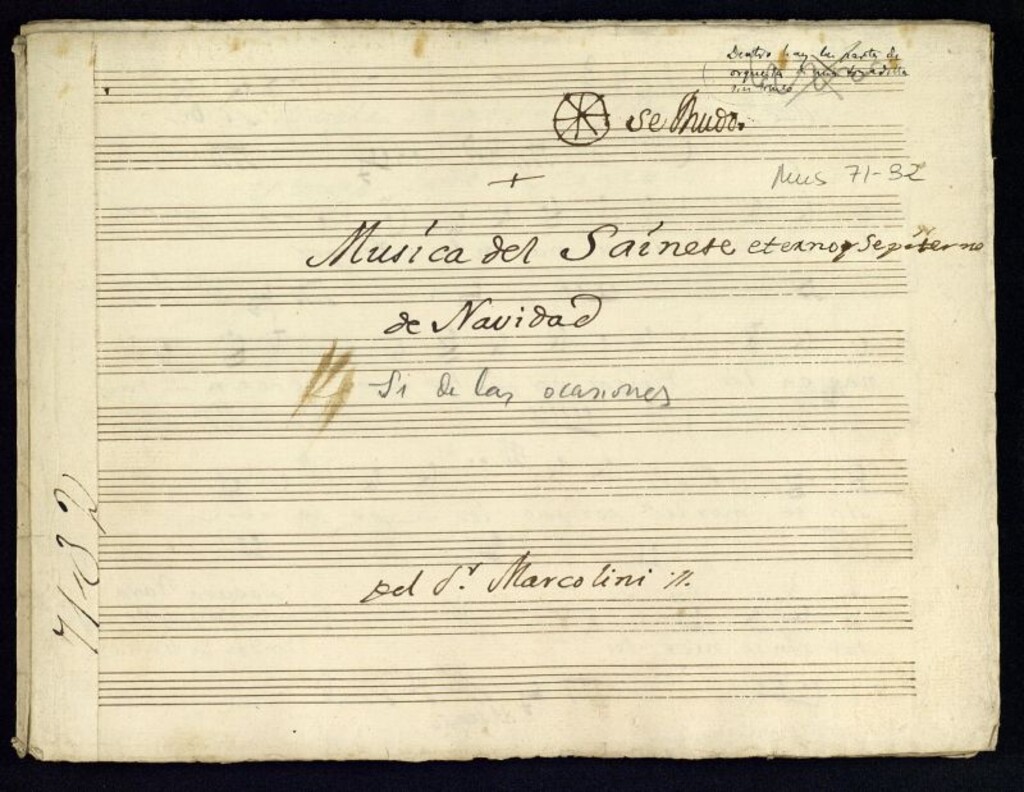 Dentro hay la parte de
orquesta de una tonadilla
sin título
se Mudó.
+
Mus 71-32
Musica del Sainete eterno y Sepiterno
de Navidad
Si de las ocasiones
del Sr. Marcolini //.
71-32